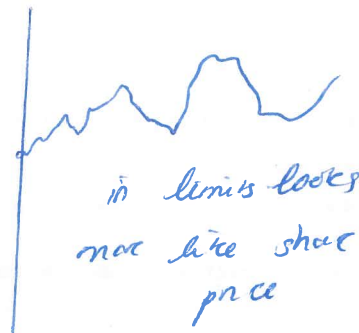 in limits looks
more like share
price